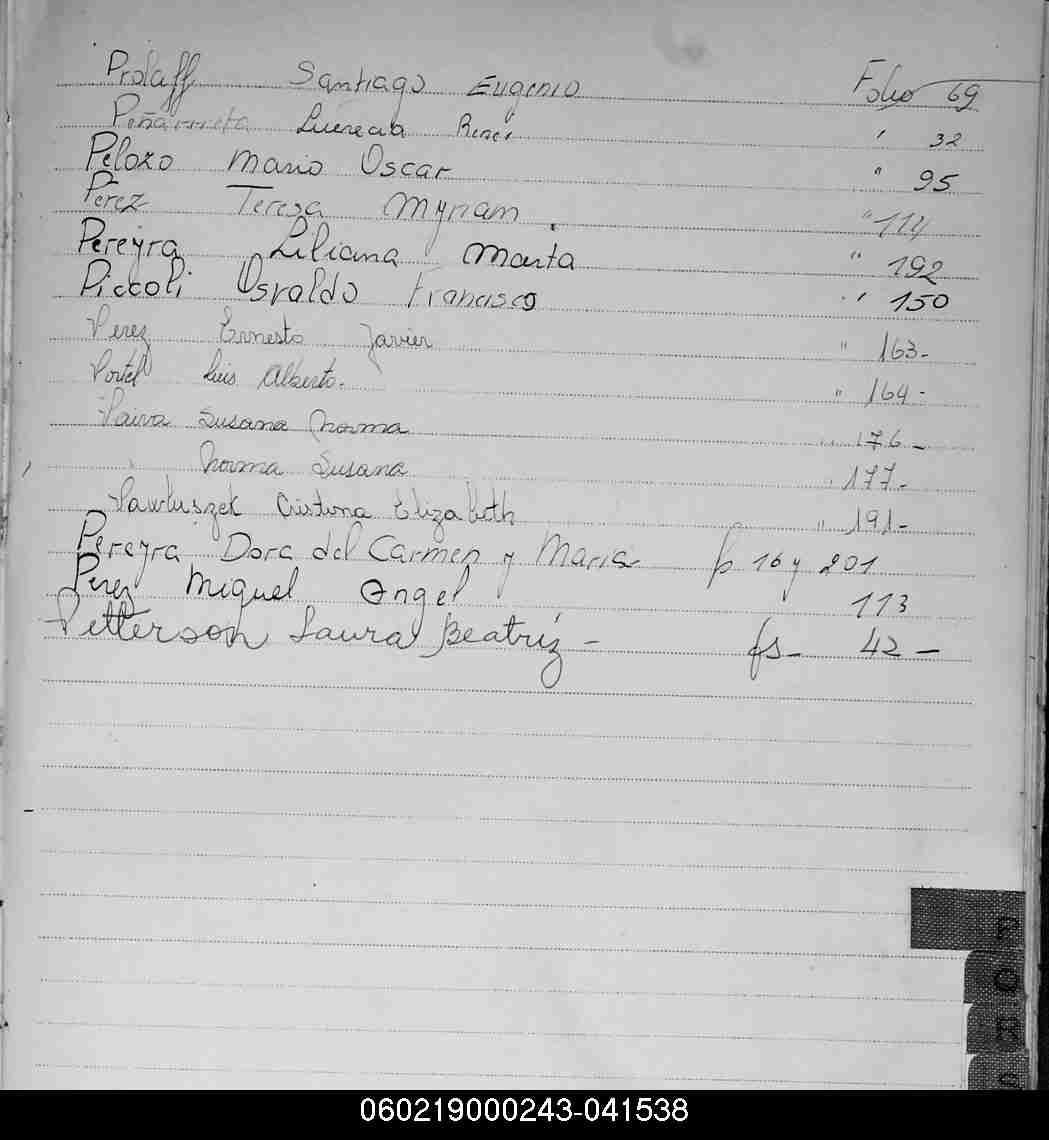 Prolaff Santiago Eugenio Folio 69
Peñarrieta Lucrecia Reneé " 32
Pelozo Mario Oscar " 95
Pérez Teresa Myriam " 114
Pereyra Liliana Marta " 192
Piccoli Osvaldo Francisco " 150
Perez Ernesto Javier " 163-
Portel Luis Alberto. " 164-
Paiva Susana Norma " 176-
" Norma Susana " 177-
Pawluszek Cristina Elizabeth " " 191-
Pereyra Dora del Carmen y Maria fs 16 y 201
Perez Miguel Angel 113
Petterson Laura Beatríz - fs- 42-
P
Q
R
S
060219000243-041538